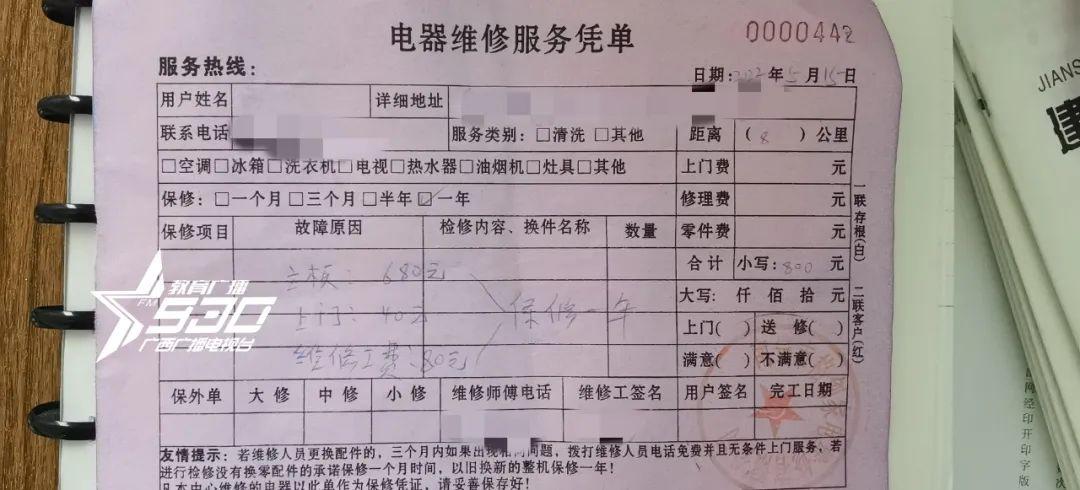 电器维修服务凭单
0000442
服务热线：
日期：2022年5月15日
用户姓名 详细地址
联系电话 服务类别：□清洗 □其他 距离（8）公里
□空调□冰箱□洗衣机□电视□热水器□油烟机□灶具□其他 上门费 元
保修：□一个月□三个月□半年☑一年 修理费 元
保修项目 故障原因 检修内容、换件名称 数量 零件费 元
合计 小写：800元
主板：680元
大写：仟 佰 拾 元
上门：40元 保修一年
上门( ) 送 修( )
维修工费：80元
满意( ) 不满意( )
保外单 大 修 中 修 小 修 维修师傅电话 维修工签名 用户签名 完工日期
友情提示：若维修人员更换配件的，三个月内如果出现相同问题，拨打维修人员电话免费并且无条件上门服务，若
进行检修没有换零配件的承诺保修一个月时间，以旧换新的整机保修一年！
凡本中心维修的电器以此单作为保修凭证，请妥善保存好！
一联存根(白) 二联客户(红)
教育广播
FM930
广西广播电视台
JIANS
建
网经印开印字版
次